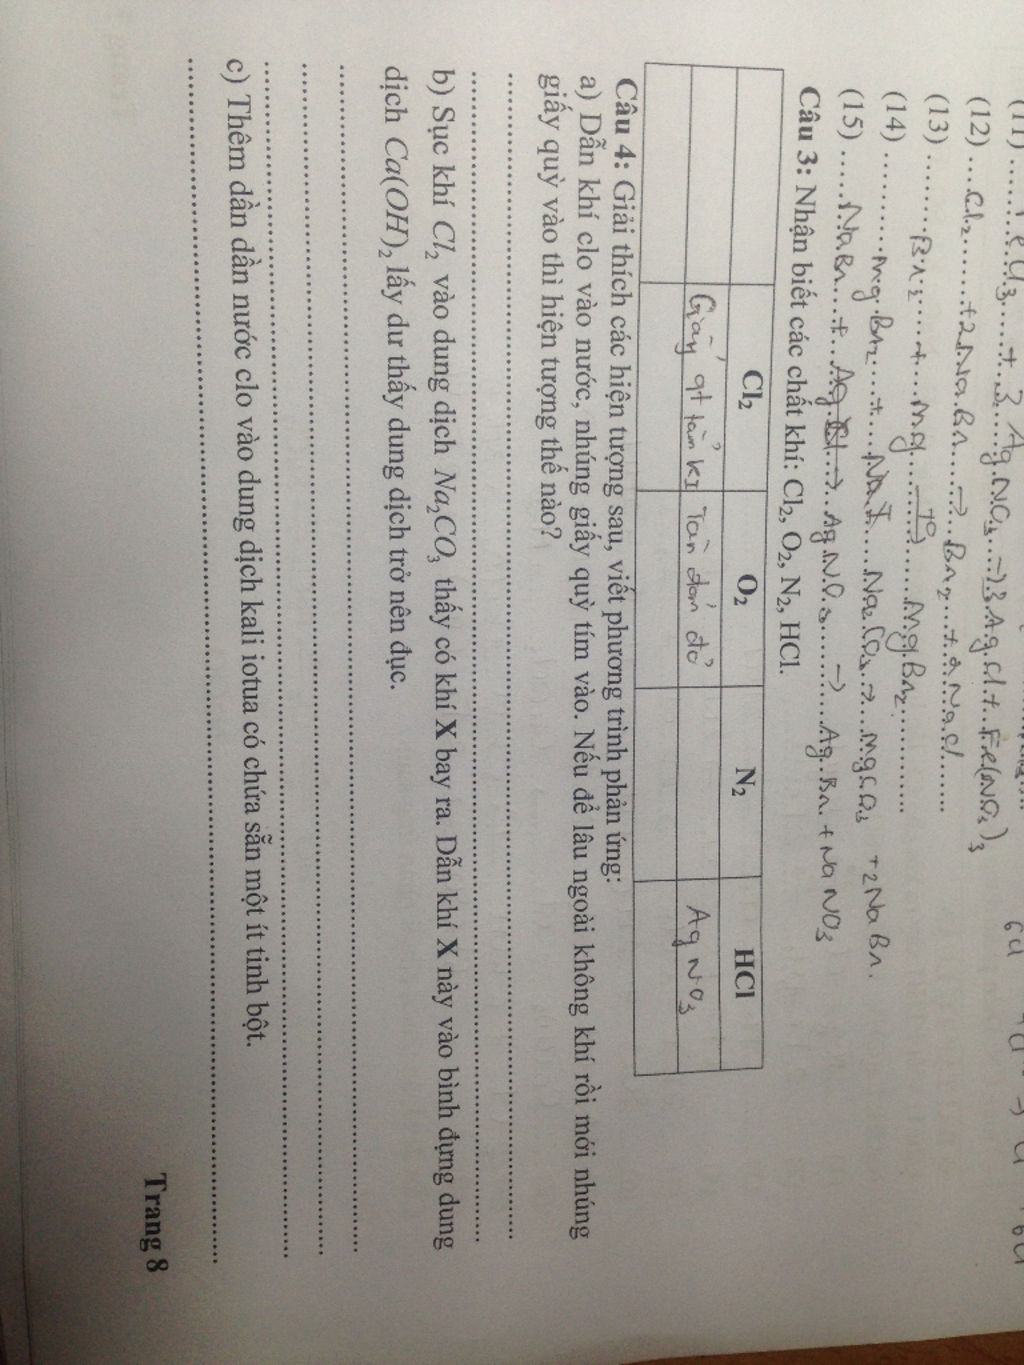 (11) ....... + 3 AgNO3 → 3 AgCl + Fe(NO3)3
(12) ... Cl2 ....... + 2 NaBr ...... → Br2 ... + 2 NaCl
(13) ........ Br2 ..... + ... Mg ..... t° → MgBr2
(14) ......... MgBr2 .... + ... Na2CO3 → ... MgCO3 + 2 NaBr.
(15) ..... NaBr ... + ... Ag ... → ... AgNO3 ...... → ... AgBr + NaNO3
Câu 3: Nhận biết các chất khí: Cl2, O2, N2, HCl.
Cl2 O2 N2 HCl
Giấy qt tẩm KI Tàn đóm đỏ AgNO3
Câu 4: Giải thích các hiện tượng sau, viết phương trình phản ứng:
a) Dẫn khí clo vào nước, nhúng giấy quỳ tím vào. Nếu để lâu ngoài không khí rồi mới nhúng
giấy quỳ vào thì hiện tượng thế nào?
b) Sục khí Cl2 vào dung dịch Na2CO3 thấy có khí X bay ra. Dẫn khí X này vào bình đựng dung
dịch Ca(OH)2 lấy dư thấy dung dịch trở nên đục.
c) Thêm dần dần nước clo vào dung dịch kali iotua có chứa sẵn một ít tinh bột.
Trang 8